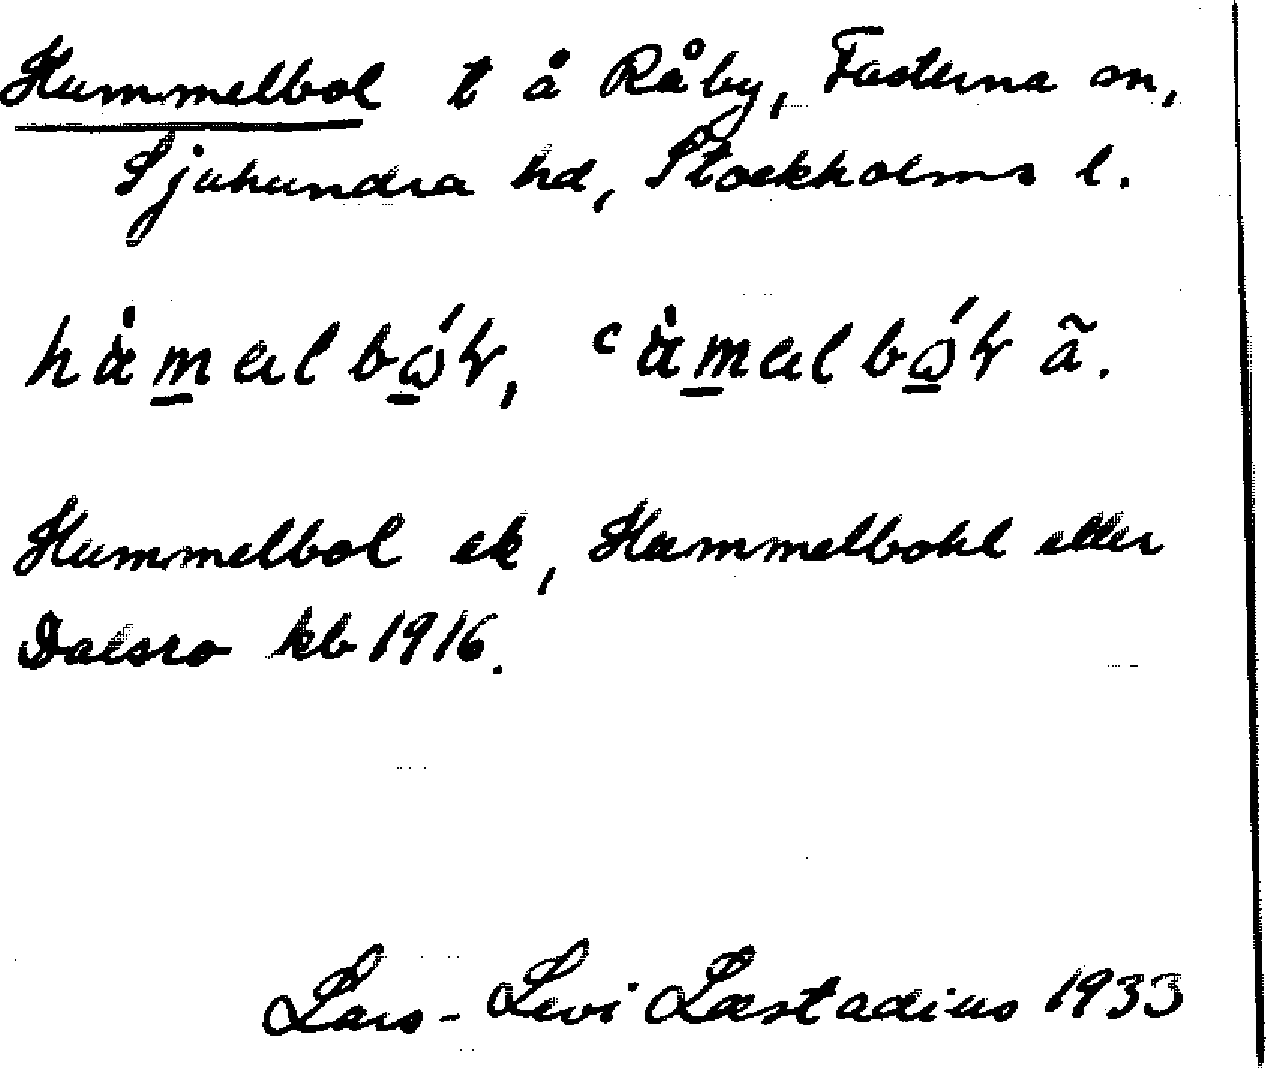 Hummelbol t å Råby, Fasterna sn,
Sjuhundra hd, Stockholms l.
Hummelbol ek, Hummelbohl eller
Dalsro kb 1916.
Lars-Levi Læstadius 1933